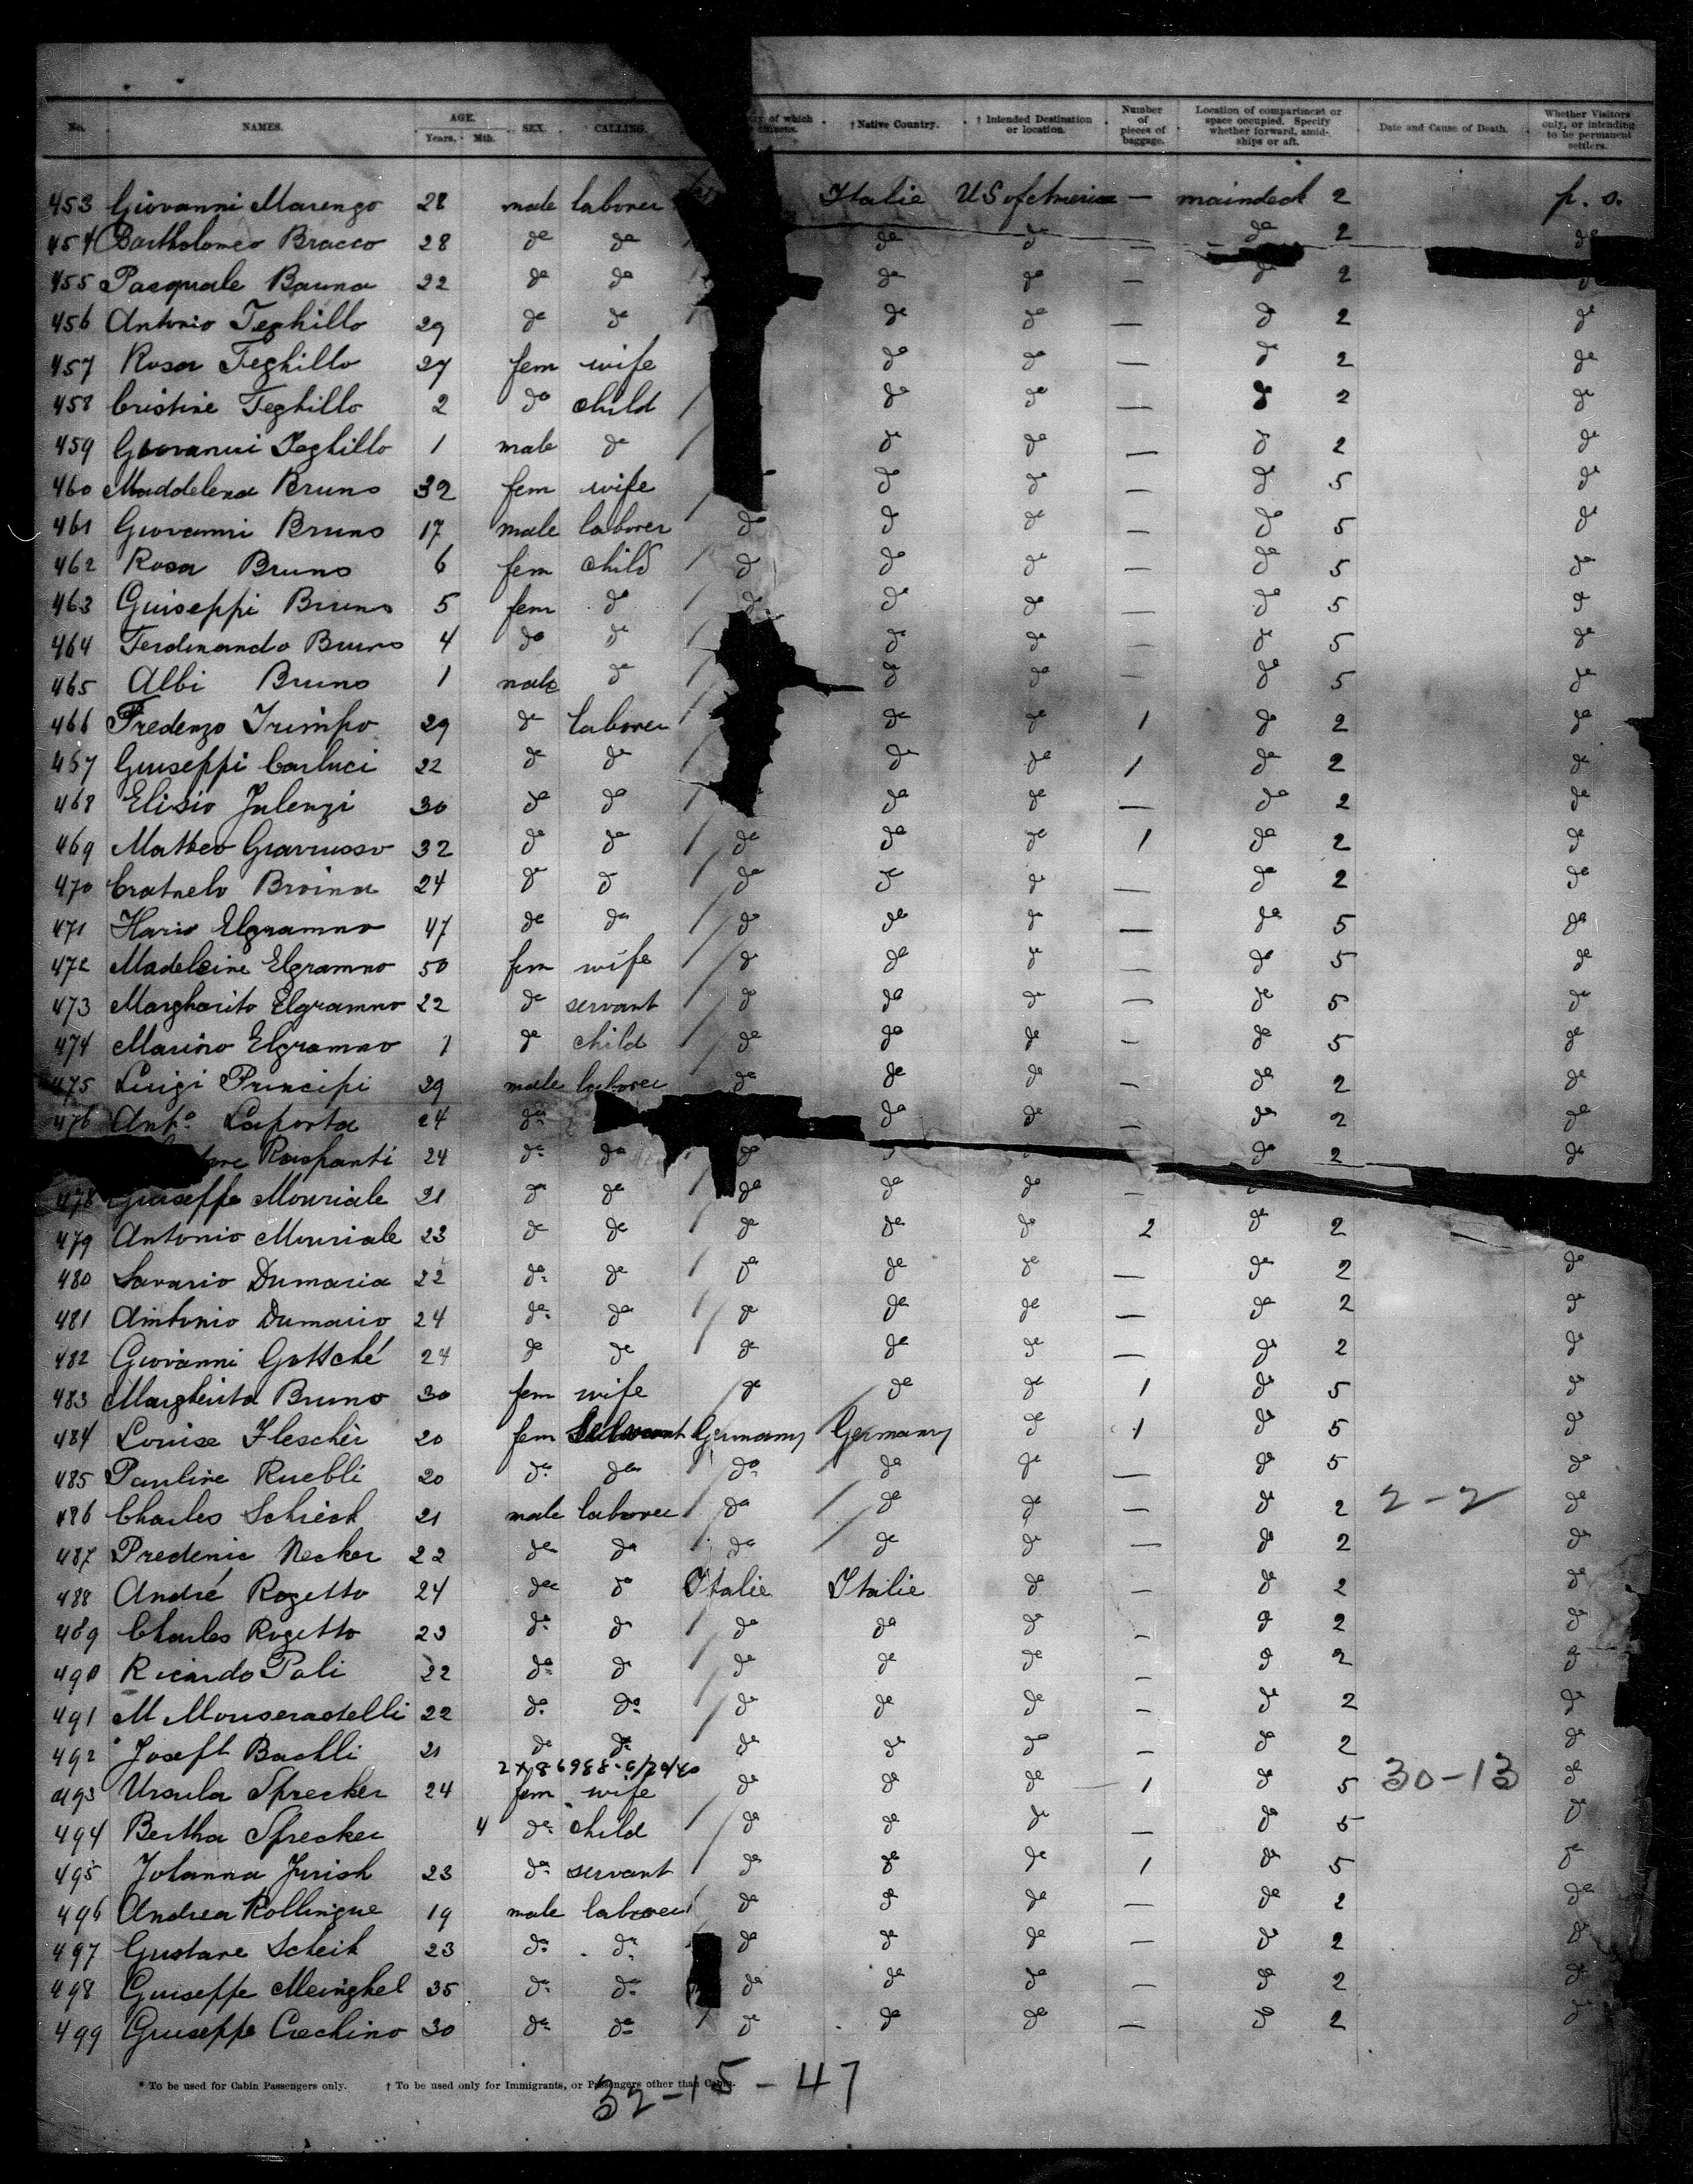 No. NAMES. AGE. Years. Mth. SEX. CALLING. of which citizens. † Native Country. † Intended Destination or location. Number of Specify pieces of baggage. Location of compartment or space occupied. Specify whether forward, amidships or aft. Date and Cause of Death. Whether Visitors only, or intending to be permanent settlers.
453 Giovanni Marengo 28 male laborer Italie US of America — maindeck 2 p. s.
454 Bartholomeo Bracco 28 do do do do — do 2 do
455 Pasquale Bauna 22 do do do do — do 2 do
456 Antonio Teghillo 29 do do do do — do 2 do
457 Rosa Teghillo 27 fem wife do do — do 2 do
458 Cristine Teghillo 2 do child / do do — do 2 do
459 Giovanni Teghillo 1 male do / do do — do 2 do
460 Maddelena Bruno 32 fem wife / do do — do 5 do
461 Giovanni Bruno 17 male laborer do do do — do 5 do
462 Rosa Bruno 6 fem child / do do do — do 5 do
463 Guiseppi Bruno 5 fem do / do do do — do 5 do
464 Ferdinando Bruno 4 do do / do do — do 5 do
465 Albi Bruno 1 male do / do do — do 5 do
466 Fredenzo Trimpo 29 do laborer / do do 1 do 2 do
467 Giuseppi Carluci 22 do do / do do 1 do 2 do
468 Elisio Julenzi 30 do do / do do — do 2 do
469 Matteo Gravrusso 32 do do / do do do 1 do 2 do
470 Cratnelo Broina 24 do do / do do do — do 2 do
471 Hario Elgramno 47 do do / do do do — do 5 do
472 Madeleine Elgramno 50 fem wife / do do do — do 5 do
473 Margharito Elgramno 22 do servant / do do do — do 5 do
474 Marino Elgramno 1 do child / do do do — do 5 do
475 Luigi Principi 29 male laborer do do do — do 2 do
476 Anto. Laporta 24 do do do — do 2 do
Raspanti 24 do do do do do 2 do
478 Giuseppe Mouriale 21 do do / do do do —
479 Antonio Mouriale 23 do do / do do do 2 do 2
480 Savario Dumaria 22 do do / do do do — do 2 do
481 Aintonio Dumario 24 do do / do do do — do 2 do
482 Giovanni Gottché 24 do do / do do do — do 2 do
483 Margherita Bruno 30 fem wife / do do do 1 do 5 do
484 Louise Flescher 20 fem Servant Germany Germany do 1 do 5 do
485 Pauline Ruebli 20 do do do do do — do 5 do
486 Charles Schieck 21 male laborer / do / do do — do 2 2-2 do
487 Frederic Necker 22 do do do / do do — do 2 do
488 André Rogetto 24 do do Italie Italie do — do 2 do
489 Charles Rogetto 23 do do / do do do — do 2 do
490 Ricardo Pali 22 do do / do do do — do 2 do
491 M Mouserastelli 22 do do / do do do — do 2 do
492 Joseft Bachli 21 do do do do do — do 2 do
2x86988-6/20/40
493 Ursula Sprecher 24 fem wife do do do 1 do 5 30-13 do
494 Bertha Sprecher 4 do child / do do do — do 5 do
495 Johanna Jurish 23 do servant / do do do 1 do 5 do
496 Andrea Rollingue 19 male laborer / do do do — do 2 do
497 Gustave Scheik 23 do do do do do — do 2 do
498 Guiseppe Meinghel 35 do do do do do — do 2 do
499 Giuseppe Cechino 30 do do / do do do — do 2 do
* To be used for Cabin Passengers only. † To be used only for Immigrants, or Passengers other than Cabin.
32-15-47